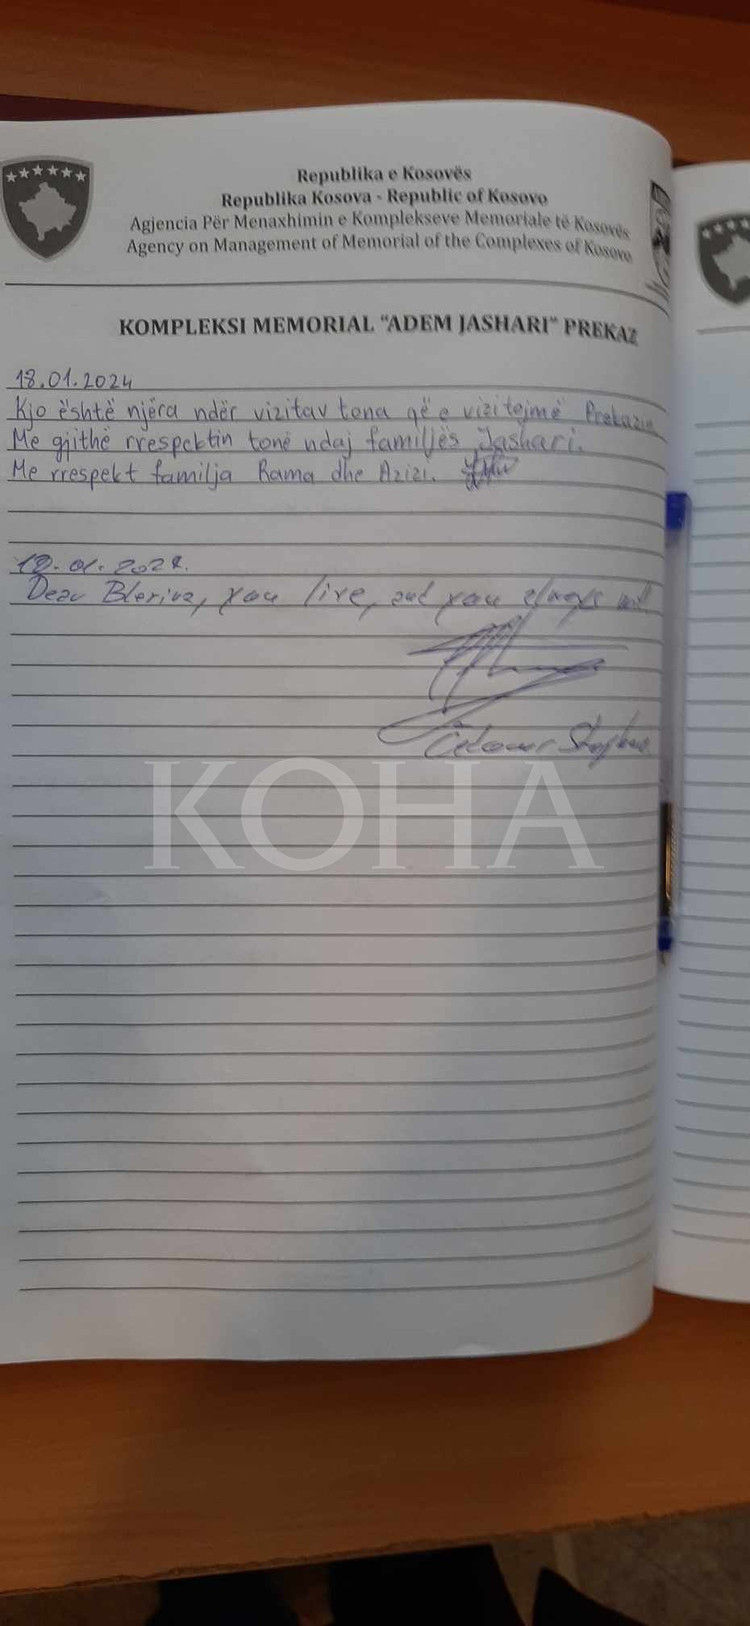 Republika e Kosovës
Republika Kosova - Republic of Kosovo
Agjencia Për Menaxhimin e Komplekseve Memoriale të Kosovës
Agency on Management of Memorial of the Complexes of Kosovo
KOMPLEKSI MEMORIAL "ADEM JASHARI" PREKAZ
18.01.2024
Kjo është njëra ndër vizitav tona që e vizitojmë Prekazin
Me gjithë rrespektin tonë ndaj familjës Jashari.
Me rrespekt familja Rama dhe Azizi.
Dear Blerina, you live, and you always will
KOHA